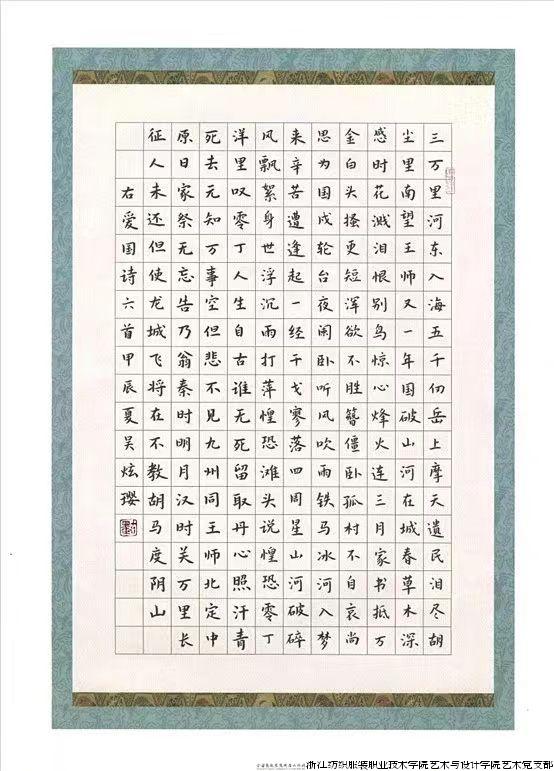 三万里河东入海五千仞岳上摩天遗民泪尽胡
尘里南望王师又一年国破山河在城春草木深
感时花溅泪恨别鸟惊心烽火连三月家书抵万
金白头搔更短浑欲不胜簪僵卧孤村不自哀尚
思为国戍轮台夜阑卧听风吹雨铁马冰河入梦
来辛苦遭逢起一经干戈寥落四周星山河破碎
风飘絮身世浮沉雨打萍惶恐滩头说惶恐零丁
洋里叹零丁人生自古谁无死留取丹心照汗青
死去元知万事空但悲不见九州同王师北定中
原日家祭无忘告乃翁秦时明月汉时关万里长
征人未还但使龙城飞将在不教胡马度阴山
右爱国诗六首甲辰夏吴炫璎
浙江纺织服装职业技术学院艺术与设计学院艺术党支部